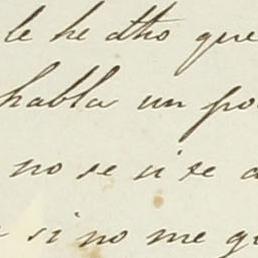 le he dho que
habla un po
no se si se
si no me